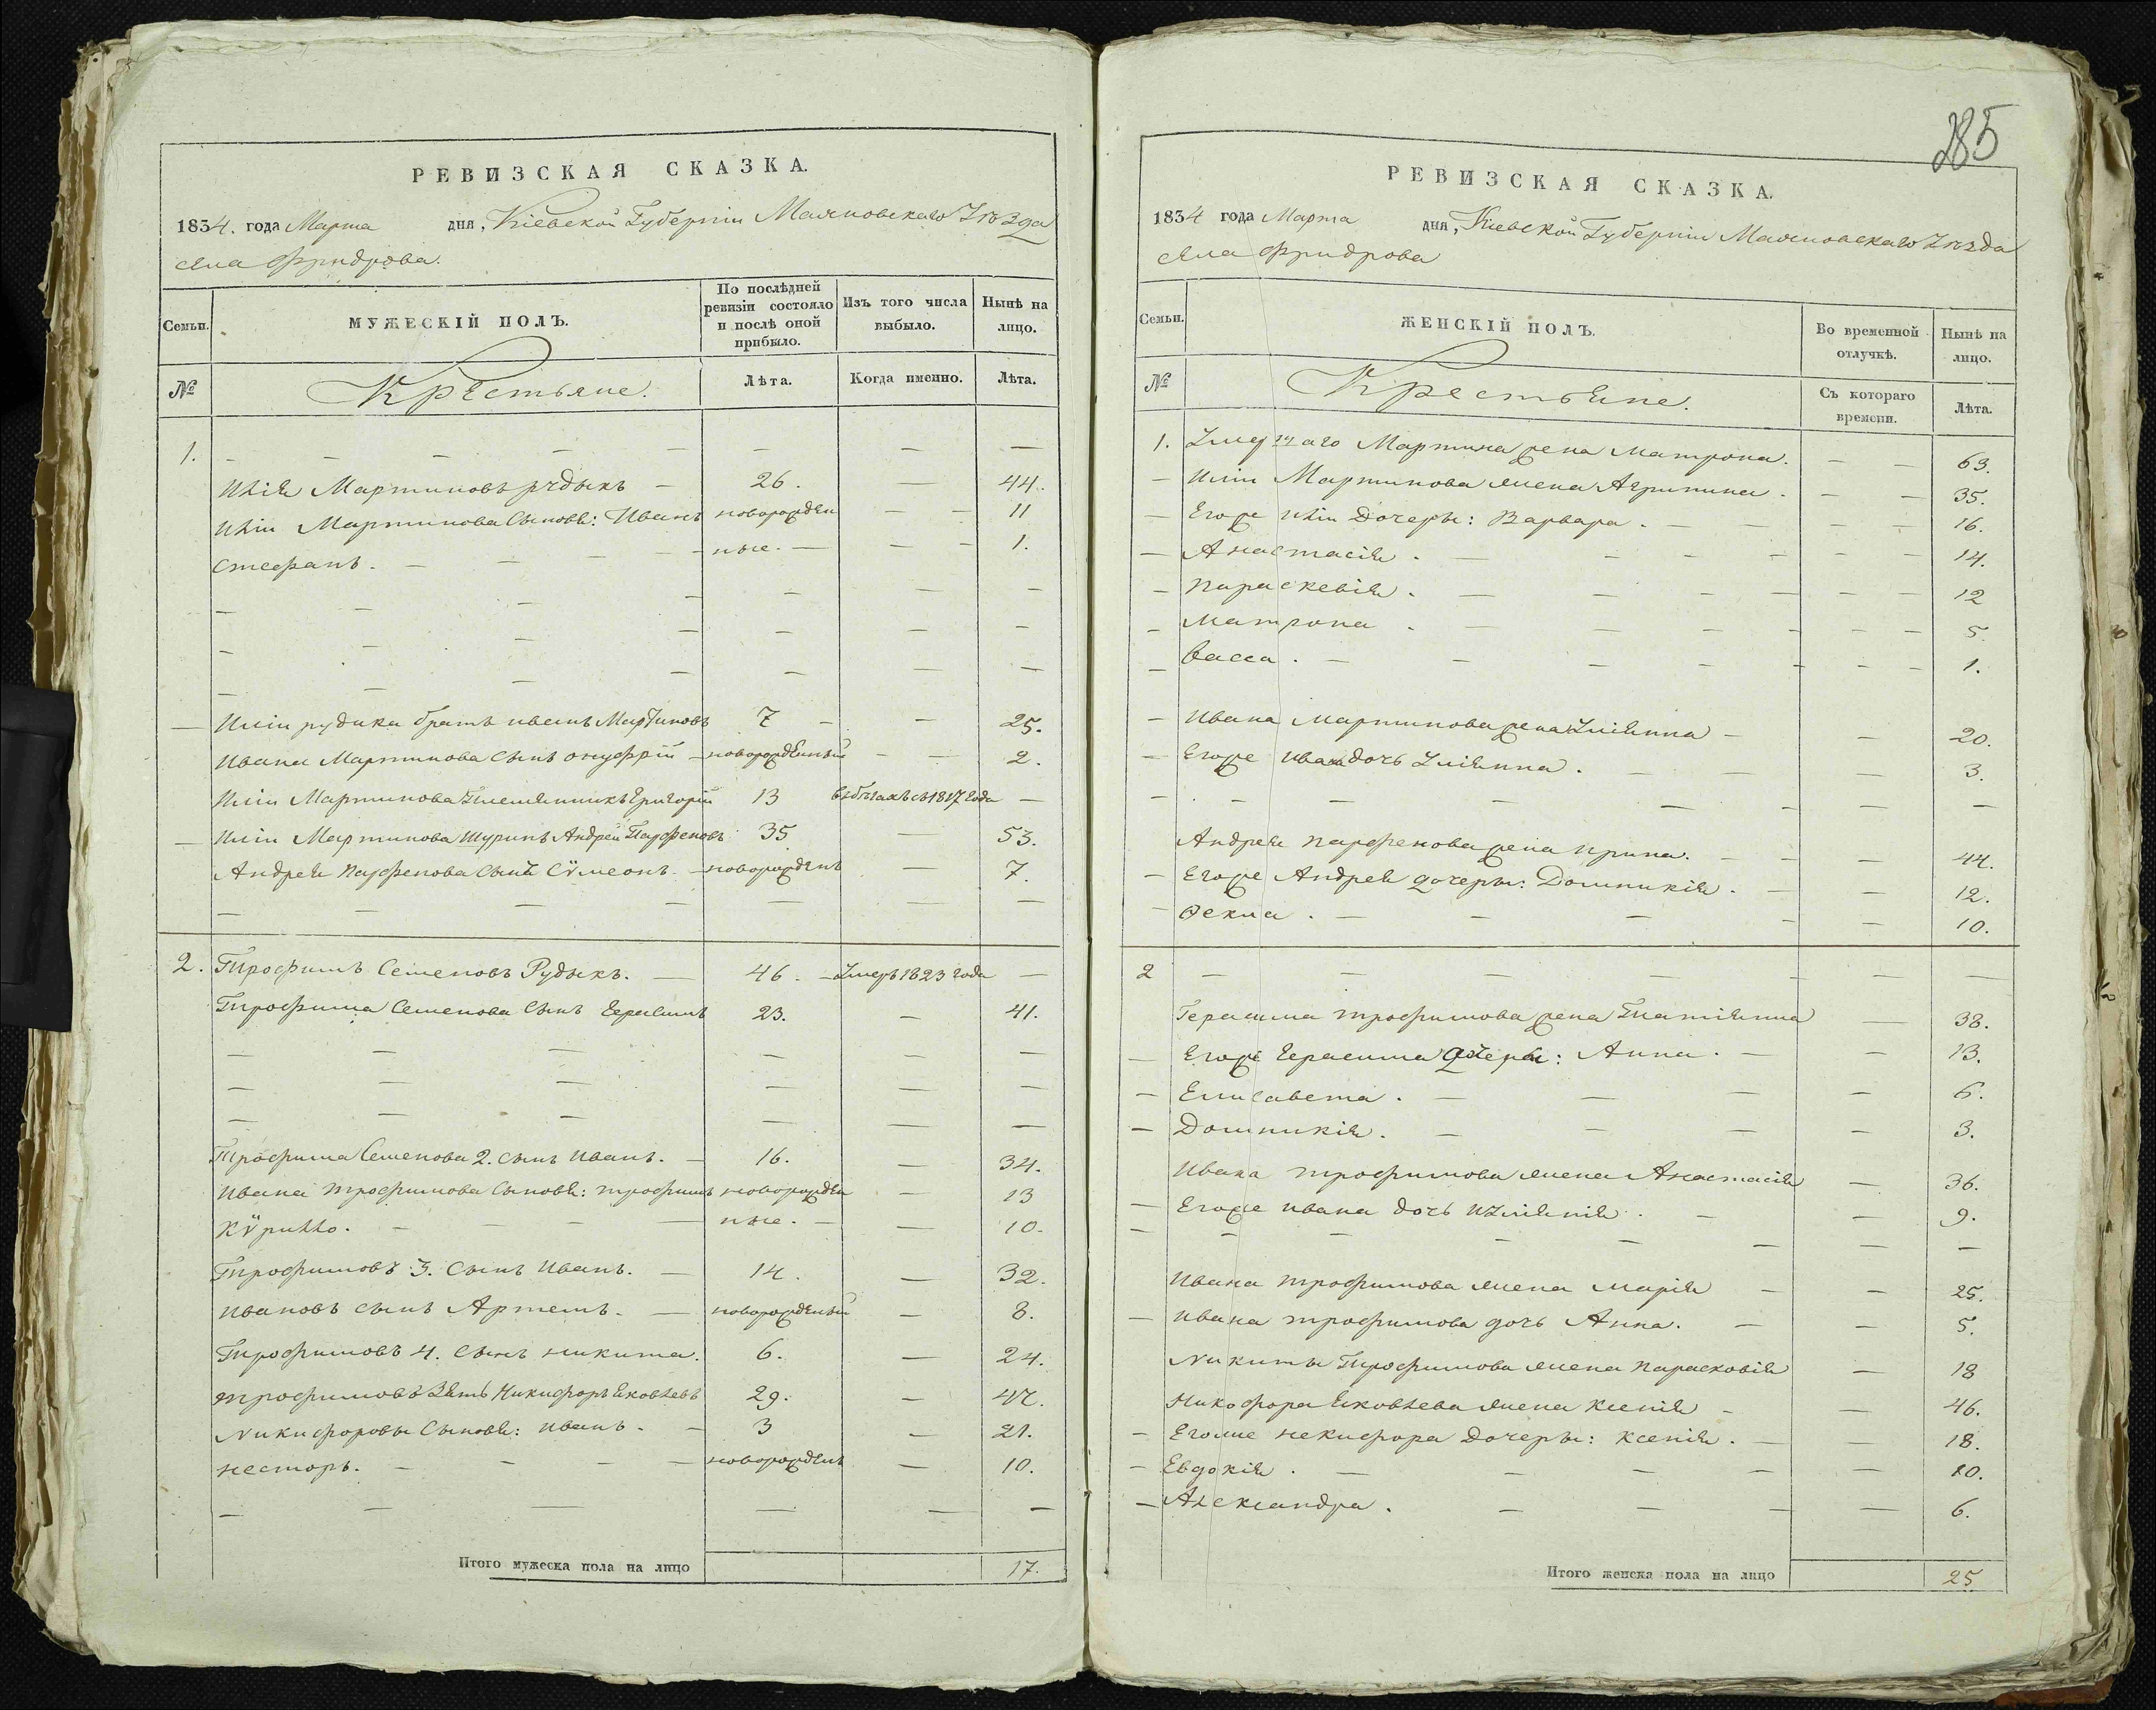 РЕВИЗСКАЯ СКАЗКА.
1834. года Марта дня, Кіевской Губерніи Махновскаго Уѣзда
села Фридрова.
Семьи.
МУЖЕСКІЙ ПОЛЪ.
По послѣдней ревизіи состояло и послѣ оной прибыло.
Изъ того числа выбыло.
Нынѣ на лицо.
№
Крестьяне.
Лѣта.
Когда именно.
Лѣта.
1. — — — — — — — —
Илія Мартиновъ рудыкъ — 26. — 44.
Иліи Мартинова Сыновя: Иванъ новорожден — — 11
Стефанъ. — — — ные. — — — 1.
— — — — — — —
— — — — — — —
— — — — — — —
— Иліи рудика братъ иванъ Мартиновъ 7 — — 25.
Ивана Мартинова Сынъ онуфрій — новорожденный — — 2.
Иліи Мартинова Племянникъ Григорій 13 въ бѣгахъ съ 1817 года —
— Иліи Мартинова Шуринъ Андрей Парфеновъ 35 — 53.
Андрея Парфенова Сынъ Сѵмеонъ. — новорожденъ — 7.
— — — — — — —
2. Трофимъ Семеновъ Рудыкъ. — 46. — Умеръ 1823 года —
Трофима Семенова Сынъ Герасимъ 23. — 41.
— — — — — —
— — — — — —
— — — — — —
Трофима Семенова 2. сынъ Иванъ. — 16. — 34.
Ивана трофимова Сыновя: трофимъ новорожден — 13
Кѵрилло. — — — — ные. — — 10.
Трофимовъ 3. Сынъ Иванъ. — 14. — 32.
Ивановъ сынъ Артемъ. — новорожденый — 8.
Трофимовъ 4. Сынъ никита. 6. — 24.
трофимовъ Зять Никифоръ Яковлевъ 29. — 47.
Никифоровы Сыновя: иванъ. — 3 — 21.
несторъ. — — — — новорожденъ — 10.
— — — — — —
Итого мужеска пола на лицо 17.
285
РЕВИЗСКАЯ СКАЗКА.
1834 года Марта дня, Кіевской Губерніи Махновскаго Уѣзда
села Фридрова
Семьи.
ЖЕНСКІЙ ПОЛЪ.
Во временной отлучкѣ.
Нынѣ на лицо.
№
Крестьяне.
Съ котораго времени.
Лѣта.
1. Мартина жена Матрона. — — 63.
— Иліи Мартинова жена Агрипина. — — 35.
— Егоже Иліи Дочеры: Варвара. — — — — 16.
— Анастасія. — — — — — — 14.
— параскевія. — — — — — — 12
— Матрона. — — — — — — 5.
— Васса. — — — — — — 1.
— Ивана Мартинова жена Уліянна — — 20.
— Егоже Ивана дочь Уліянна. — — — 3.
— — — — — — — —
Андрея Парфенова жена ирина. — — — 44.
— Егоже Андрея дочеры: Домникія. — — 12.
— Фекла. — — — — — 10.
2 — — — — — — —
Герасима трофимова жена Татіянна — 38.
— Егоже Герасима дочеры: Анна. — — 13.
— Елисавета. — — — — 6.
— Домникія. — — — — 3.
Ивана трофимова жена Анастасія — 36.
— Егоже ивана дочь Иуліянія. — — 9.
— — — — — — — —
Ивана трофимова жена марія — — 25.
— Ивана трофимова дочь Анна. — — 5.
Никиты Трофимова жена Парасковія — 18
Никофора Яковлева жена ксенія — — 46.
— Егоже некифора Дочеры: ксенія. — — 18.
— Евдокія. — — — — — 10.
— Александра. — — — — 6.
Итого женска пола на лицо 25